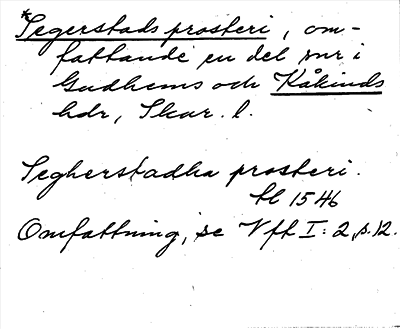 *Segerstads prosteri, om-
fattande en del snr i
Gudhems och Kåkinds
hdr, Skar. l.
Segherstadha prosteri.
hl 1546
Omfattning, se Vfft I: 2, s. 12.